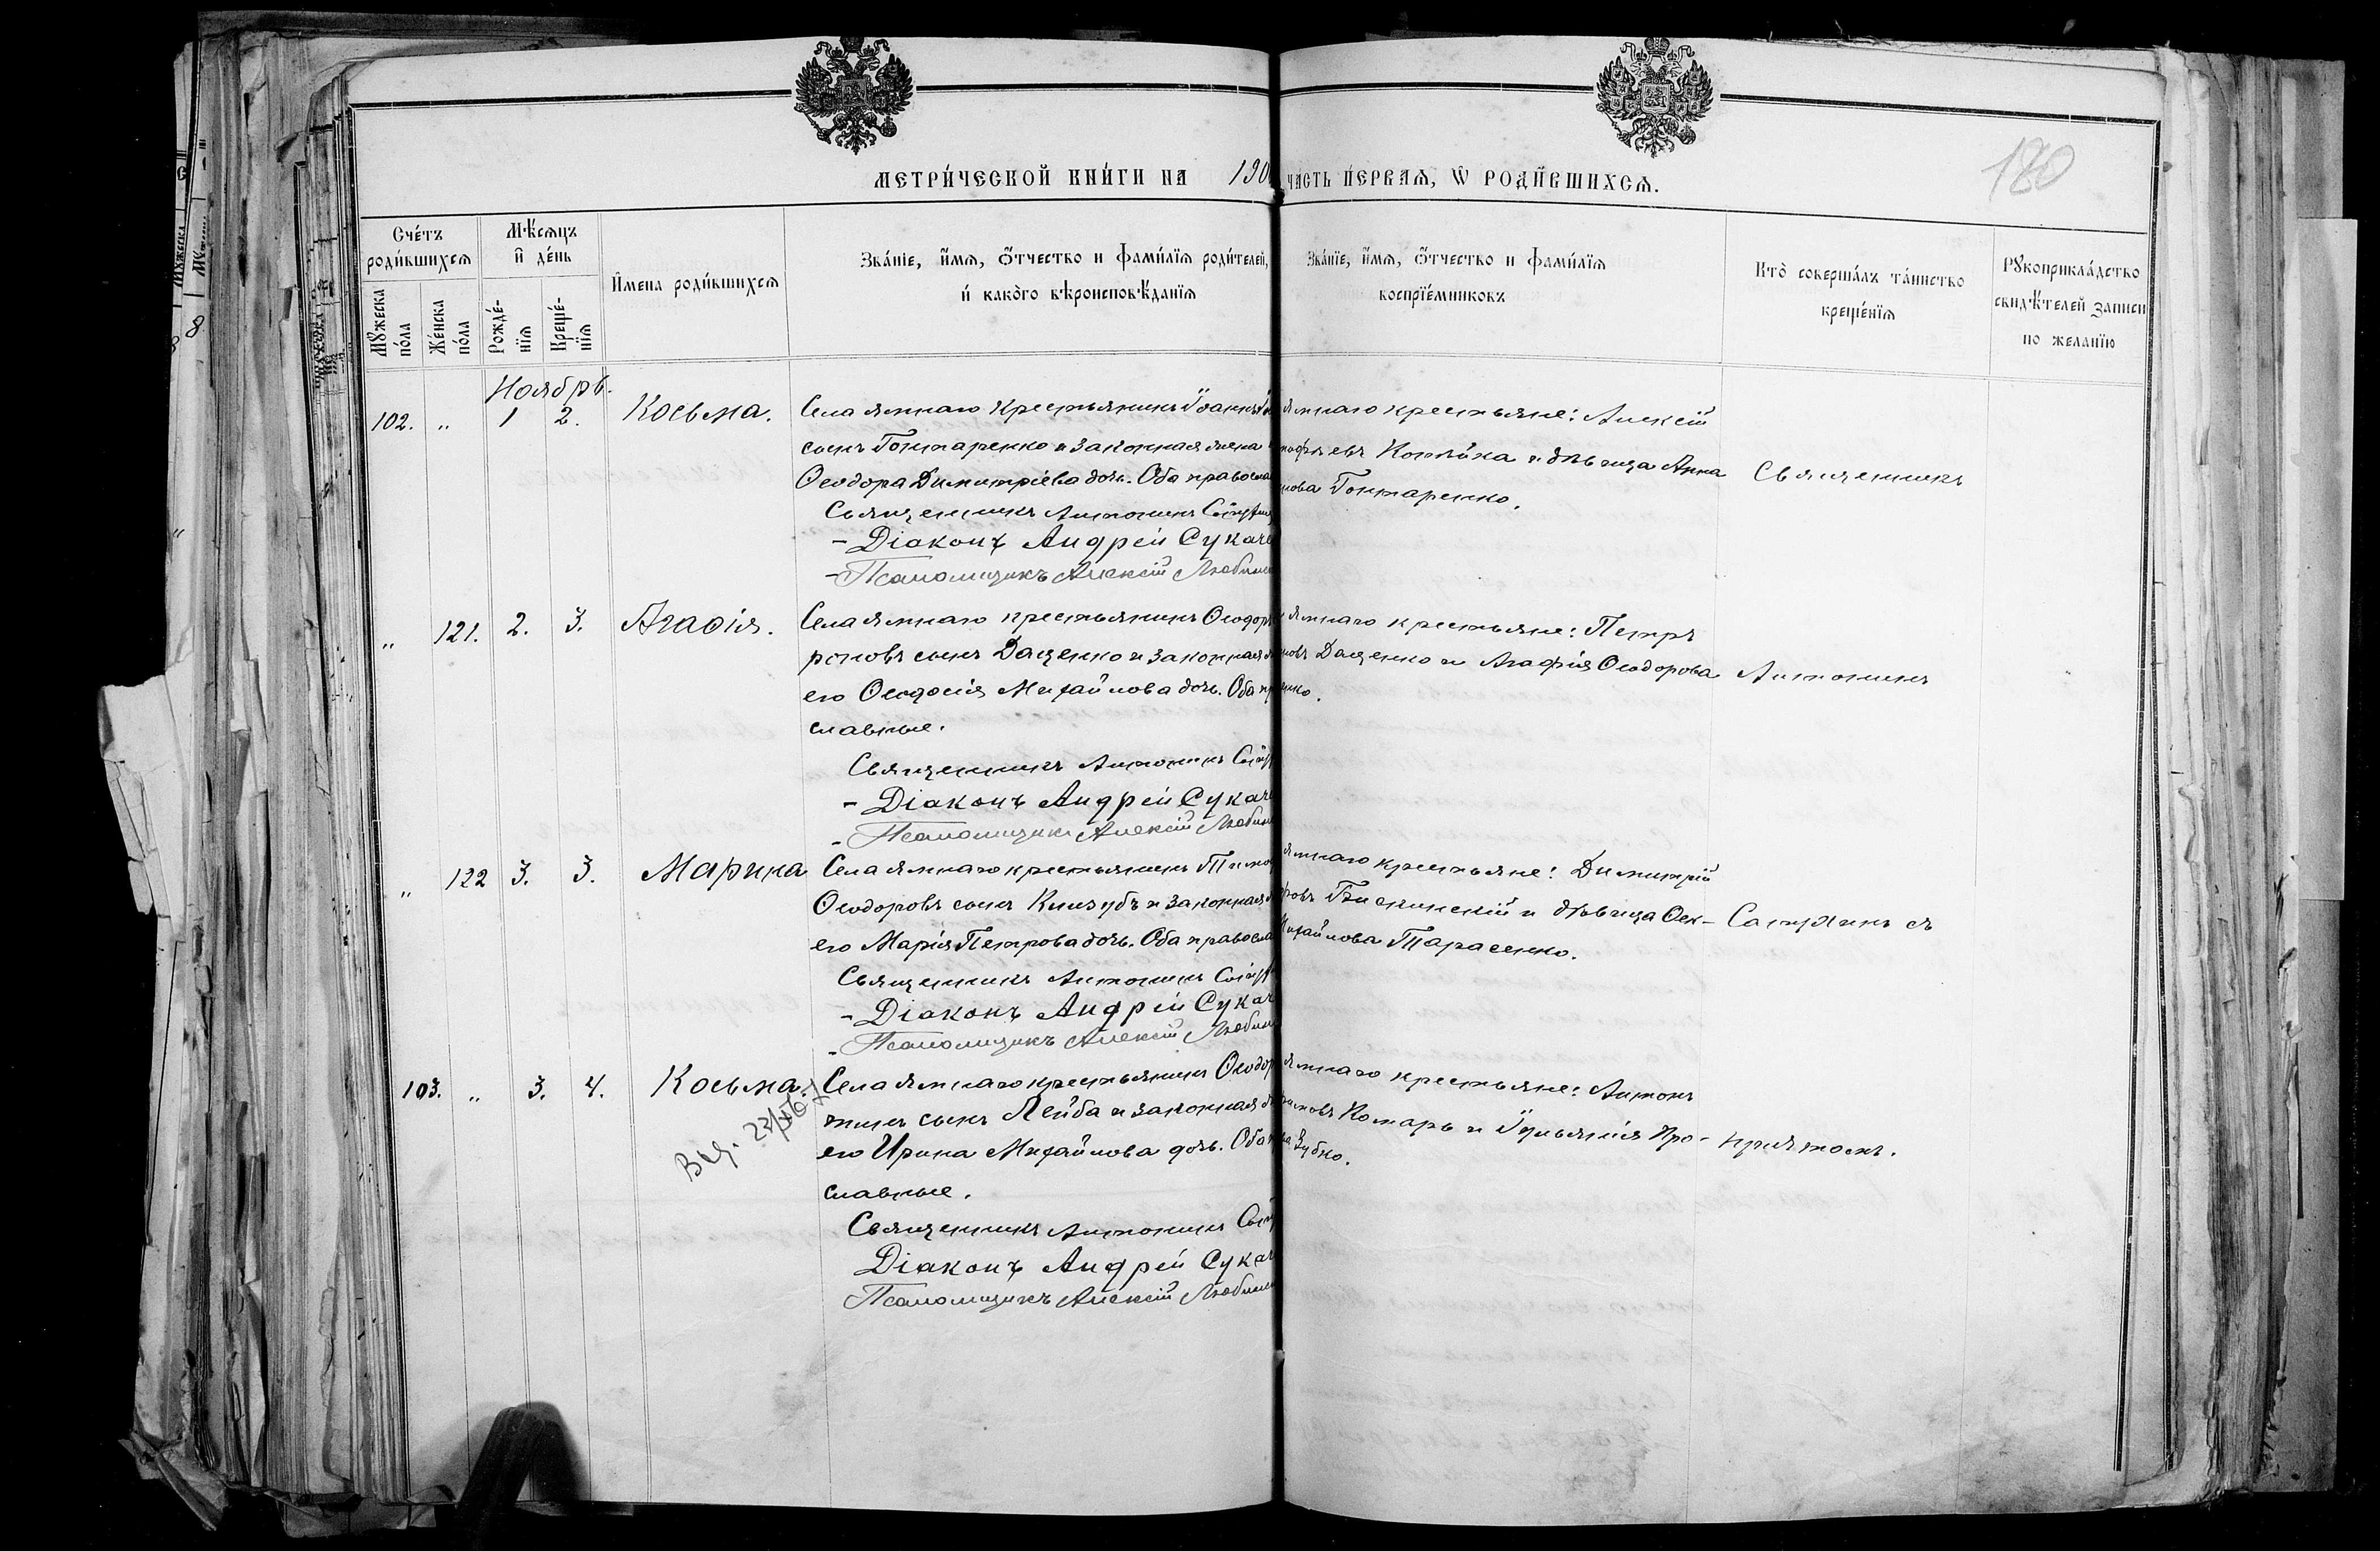 180
МЕТРИ́ЧЕСКОЙ КНИ́ГИ НА 190
ЧАСТЬ ПЕ́РВАѦ, Ѡ РОДИ́ВШИХСѦ.
Сче́тъ роди́вшихсѧ
Мꙋжеска по́ла
Же́нска по́ла
Мѣ́сѧцъ и де́нь
Рожде́-нїѧ
Креще́-нїѧ
Имена роди́вшихсѧ
Зва́нїе, и́мѧ, ѻ́тчество и фами́лїѧ роди́телей,
и како́го вѣроисповѣ́данїѧ
Зва́нїе, и́мѧ, ѻ́тчество и фами́лїѧ
воспрїе́мниковъ
Кто̀ соверша́лъ та́инство
креще́нїѧ
Рꙋкоприкла́дство
свидѣ́телей записи
по желанїю
Ноябрь.
102. " 1 2. Косьма.
Села Ямнаго крестьянинъ Іоаннъ
сынъ Гонтаренко и законная жена
Ѳеодора Димитріева дочь. Оба правосла
Священникъ Антонинъ
- Діаконъ Андрей Сукаче
- Псаломщикъ Алексій Любим
Ямнаго крестьяне: Алексій
Копѣйка и дѣвица Анна
нова Гонтаренко.
Священникъ
" 121. 2. 3. Агаѳія.
Села Ямнаго крестьянинъ Ѳеодоръ
роновъ сынъ Даценко и законная
его Ѳеодосія Михайлова дочь. Оба пр
славные.
Священникъ Антонинъ
- Діаконъ Андрей Сукаче
- Псаломщикъ Алексій Любим
Ямнаго крестьяне: Петръ
новъ Даценко и Агафія Ѳеодорова
енко.
Антонинъ
" 122 3. 3. Марина
Села Ямнаго крестьянинъ Тимо
Ѳеодоровъ сынъ Кизубъ и законная
его Марія Петрова дочь. Оба правосла
Священникъ Антонинъ
- Діаконъ Андрей Сукач
- Псаломщикъ Алексій Любим
Ямнаго крестьяне: Димитрій
и дѣвица Ѳек-
Михайлова Тарасенко.
съ
103. " 3. 4. Косьма.
Села Ямнаго крестьянинъ Ѳеодор
тинъ сынъ Лейба и законная
его Ирина Михайлова дочь. Оба
славные.
Священникъ Антонинъ
Діаконъ Андрей Сукач
Псаломщикъ Алексій Любим
Ямнаго крестьяне: Антонъ
Комаръ и Іуліанія Про-
ва Зубко.
причтомъ.